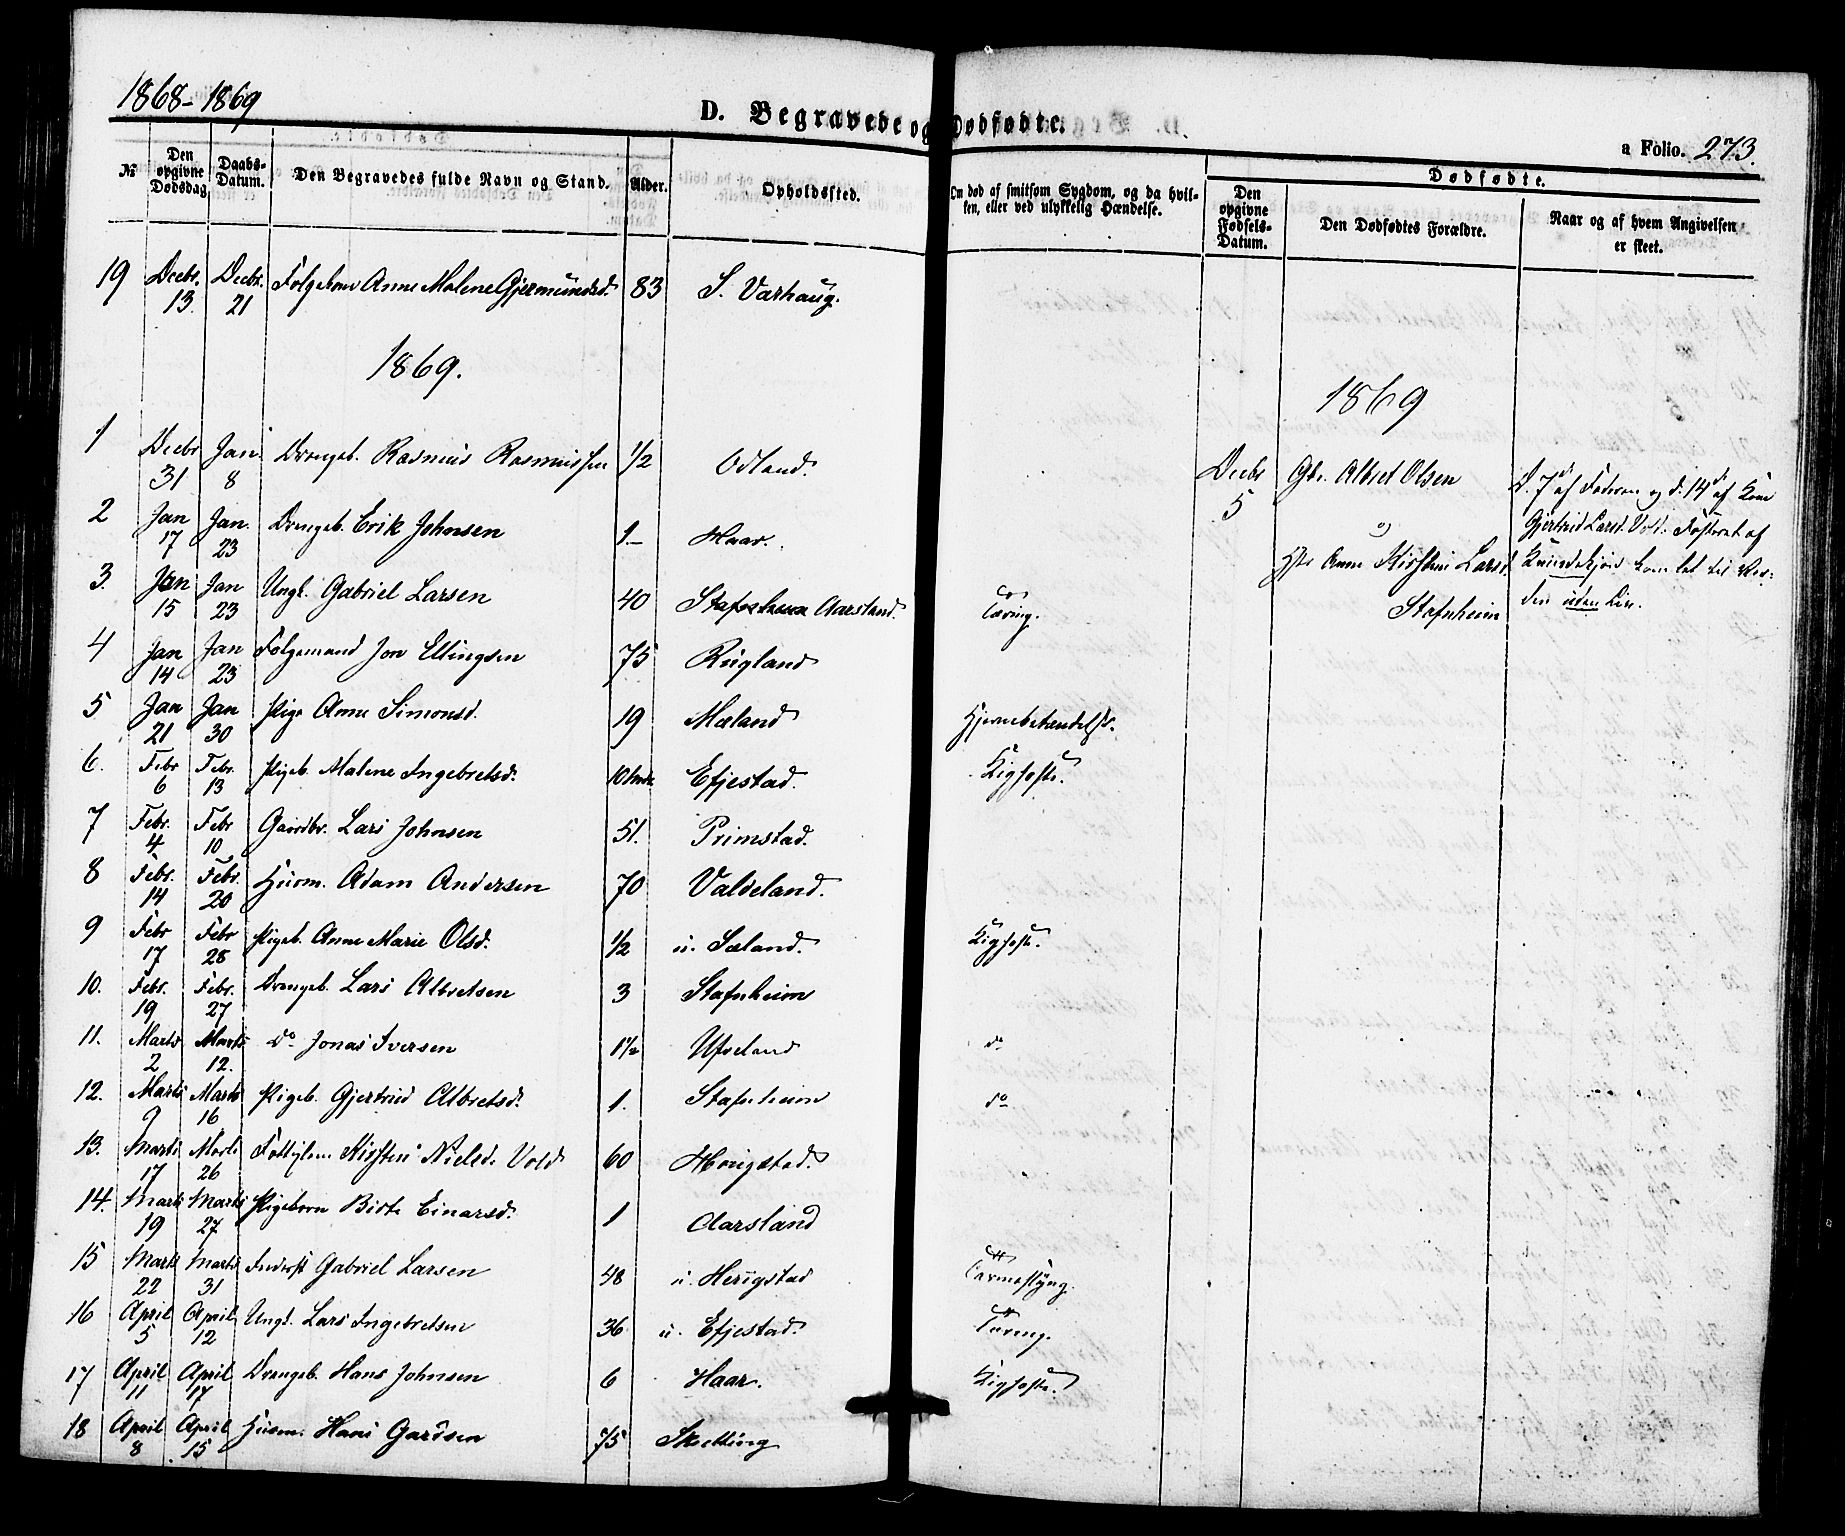 1868-1869
D. Begravede og Dødfødte.
a Folio. 273.
№ | Den opgivne Dødsdag | Daabs-Datum. | Den Begravedes fulde Navn og Stand. | Alder. | Opholdssted. | Om død af smitsom Sygdom, og da hvilken, eller ved ulykkelig Hændelse.
Dødfødte.
Den opgivne Fødsels-Datum. | Den Dødfødtes Forældre. | Naar og af hvem Angivelsen er skeet.
19 Decbr. 13. Decbr. 21 Følgekone Anne Malene Gjermundsd. 83 S. Varhaug.
1869.
1 Decbr 31 Jan. 8 Drengeb. Rasmus Rasmussen 1/2 Odland.
2 Jan 17 Jan. 23 Drengeb. Erik Johnsen 1 Haar.
3. Jan 15 Jan 23 Ungk. Gabriel Larsen 40 Aarsland. Tæring.
4 Jan 14 Jan 23 Følgemand Jon Ellingsen 75 Rugland
5 Jan 21 Jan 30 Pige Anne Simonsd. 19 Mæland Hjernebetændelse.
6. Febr 6 Febr. 13 Pigeb. Malene Ingebretsd. 10 Efjestad. Kighoste.
7 Febr. 4 Febr 10 Gaardbr. Lars Johnsen 51. Primstad.
8 Febr. 14 Febr. 20 Huusm. Adam Andersen 70 Valdeland.
9 Febr 17 Febr 28 Pigeb. Anne Marie Olsd. 1/2 u. Sæland. Kighoste.
10. Febr. 19 Febr. 27 Drengeb. Lars Albretsen 3 Stafnheim
11. Marts 2 Marts 12. do Jonas Iversen 1 1/2 Ufseland do
12. Marts 9 Marts 16 Pigeb. Gjertrud Albretsd. 1. Stafnheim do
13. Marts 17 Marts 26 Kirsten Nielsd. Vold 60 Herigstad.
14. Marts 19 Marts 27 Pigebarn Birte Einarsd. 1 Aarsland
15 Marts 22 Marts 31 Inderst Gabriel Larsen 48 u. Herigstad Tarmeslyng.
16 April 5 April 12 Ungk. Lars Ingebretsen 36 u. Efjestad. Tæring.
17 April 11 April 17 Drengeb. Hans Johnsen 6 Haar. Kighoste.
18 April 8 April 15 Huusm. Hans Gardsen 75 Skretting
1869
Decbr 5 Gbr. Albret Olsen
og
Hstr Anne Kirstine Larsd.
Stafnheim
D. 7de af Faderen og d. 14de af Kone
Gjertrud Larsd. Vold. Fosteret af
Kvindekjøn kom let til Ver-
den uden Liv.